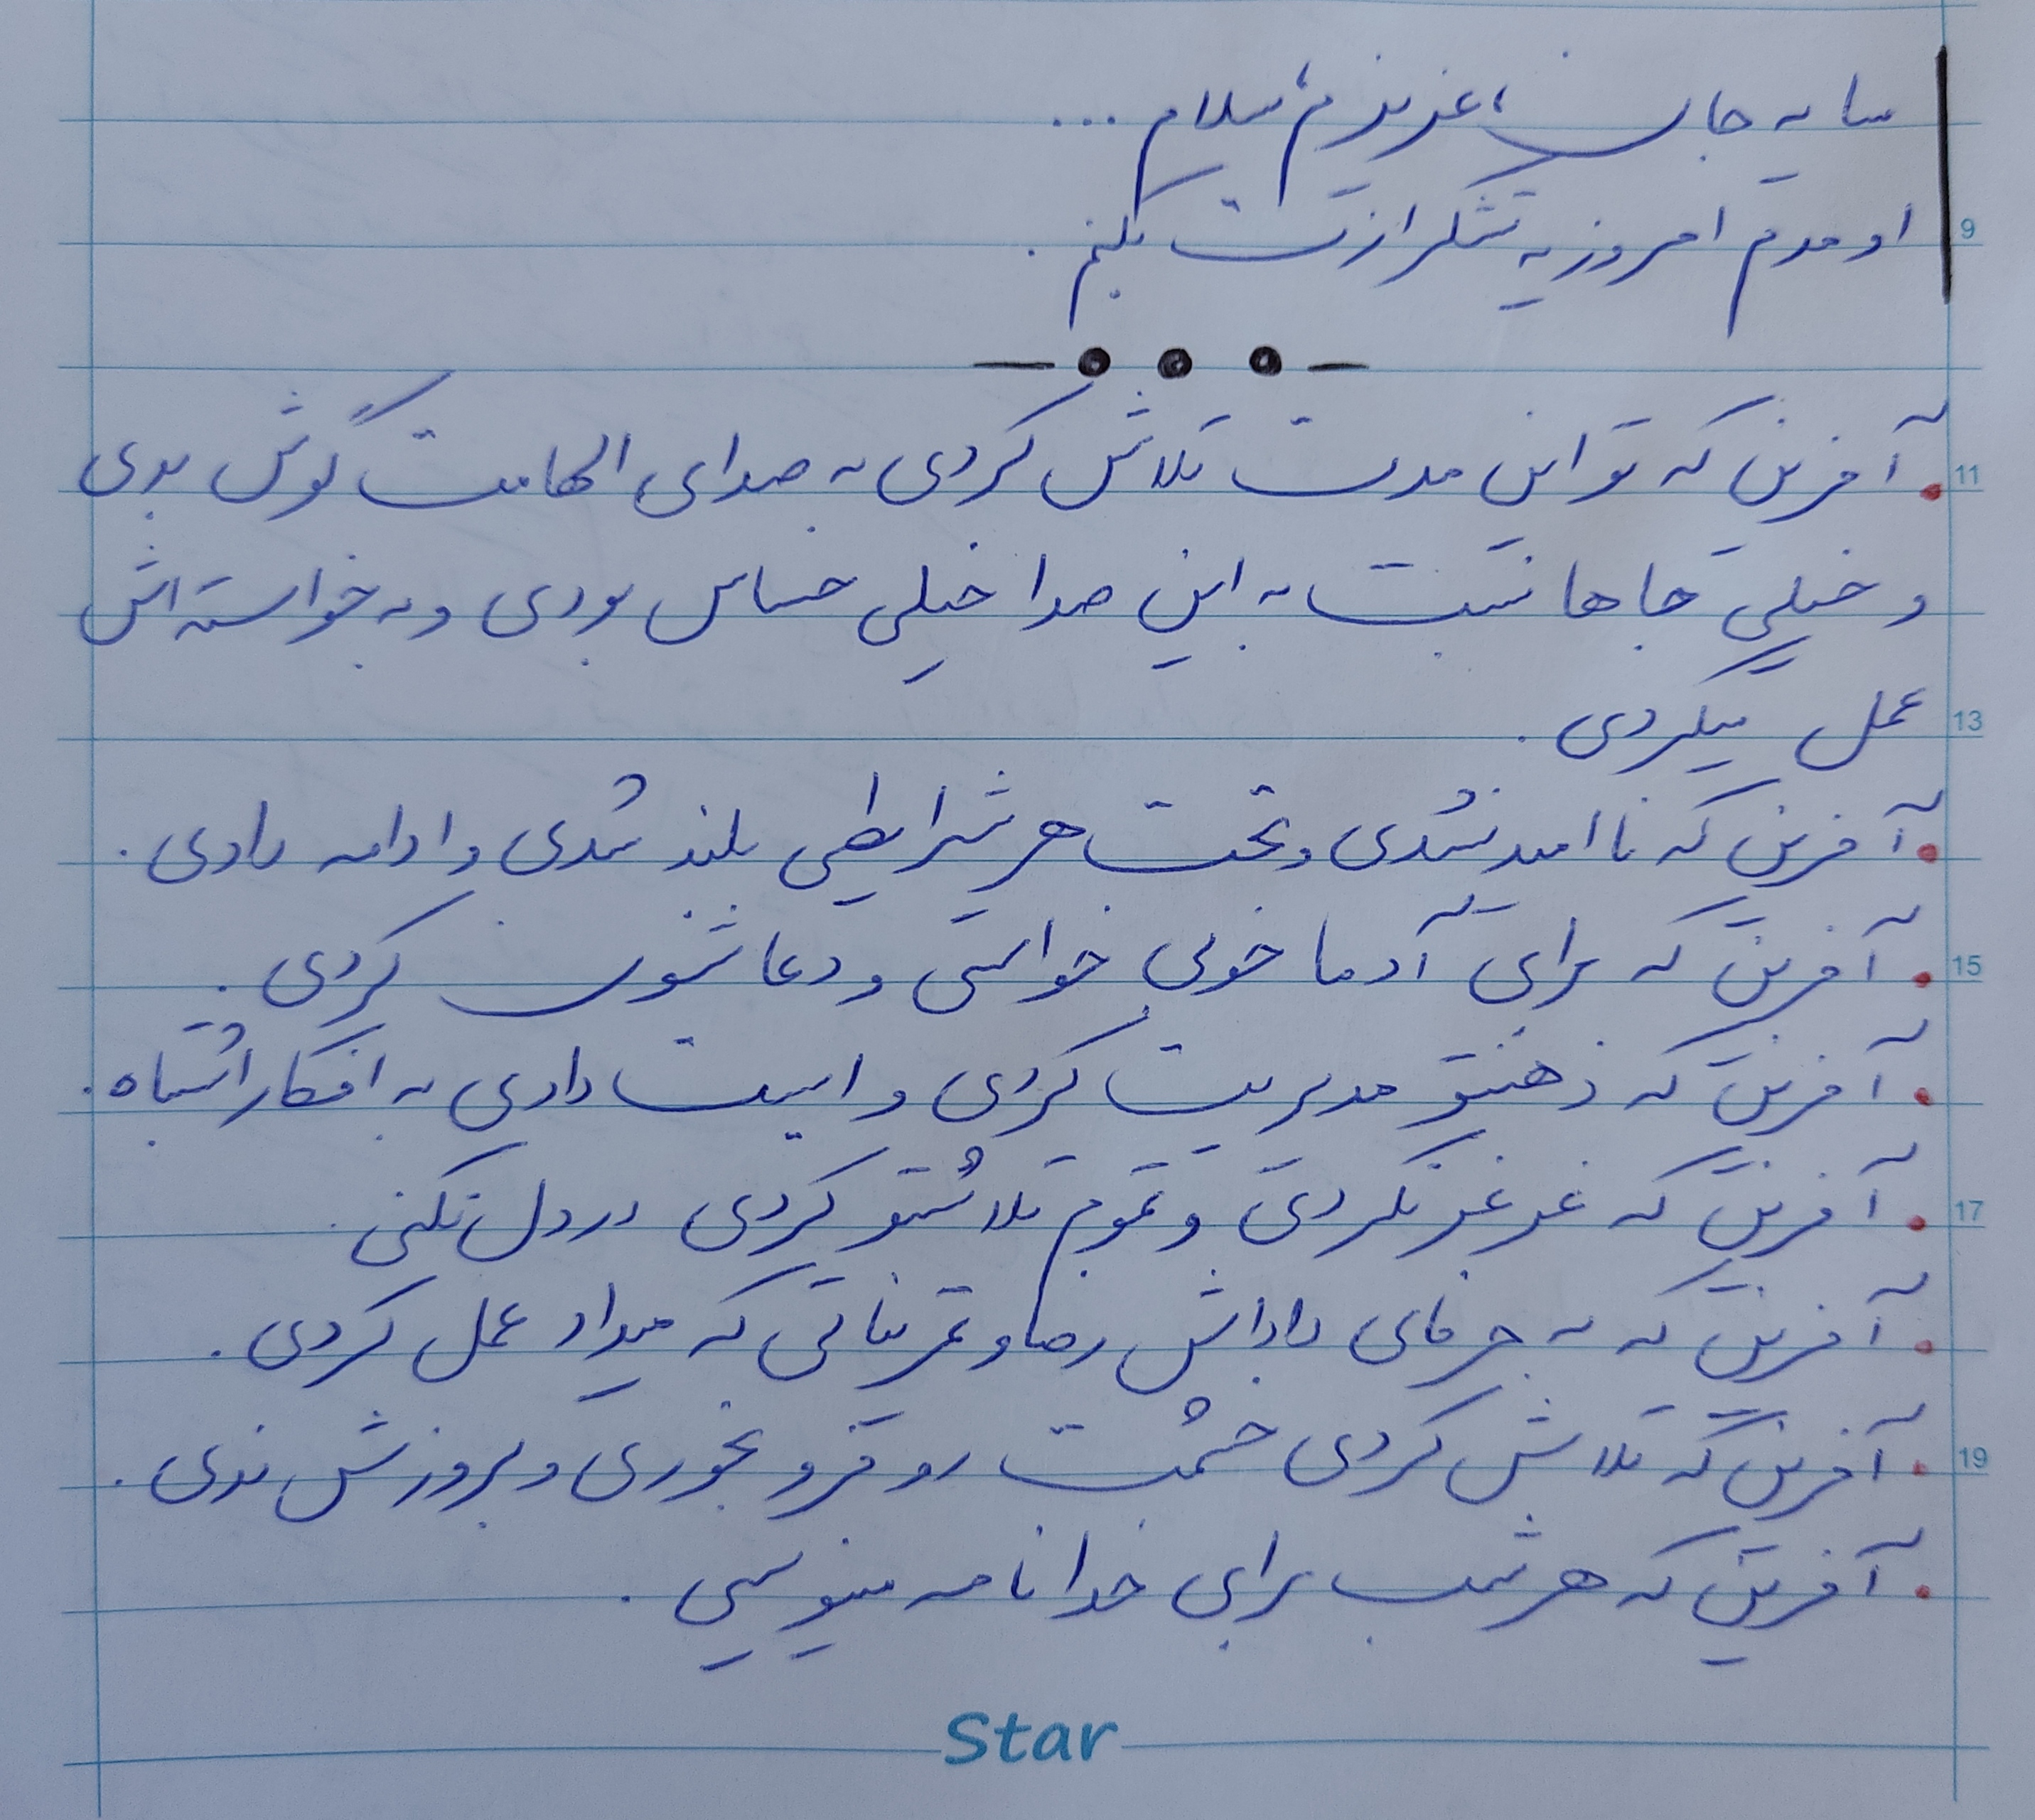 سایه جان، عزیزم، سلام ...
اومدم امروز یه تشکر ازت بکنم .
9
آفرین که تو این مدت تلاش کردی به صدای الهامت گوش بدی
11
و خیلی جاها نسبت به این صدا خیلی حساس بودی و به خواسته اش
عمل میکردی .
13
آفرین که ناامید نشدی و تحت هر شرایطی بلند شدی و ادامه دادی .
آفرین که برای آدما خوبی خواستی و دعاشون کردی .
15
آفرین که ذهنتو مدیریت کردی و ایست دادی به افکار اشتباه .
آفرین که غرغر نکردی و تموم تلاشتو کردی درد دل نکنی .
17
آفرین که به حرفای داداش رضا و تمریناتی که میداد عمل کردی .
آفرین که تلاش کردی خشمت رو فرو بخوری و بروزش ندی .
19
آفرین که هر شب برای خدا نامه مینویسی .
Star